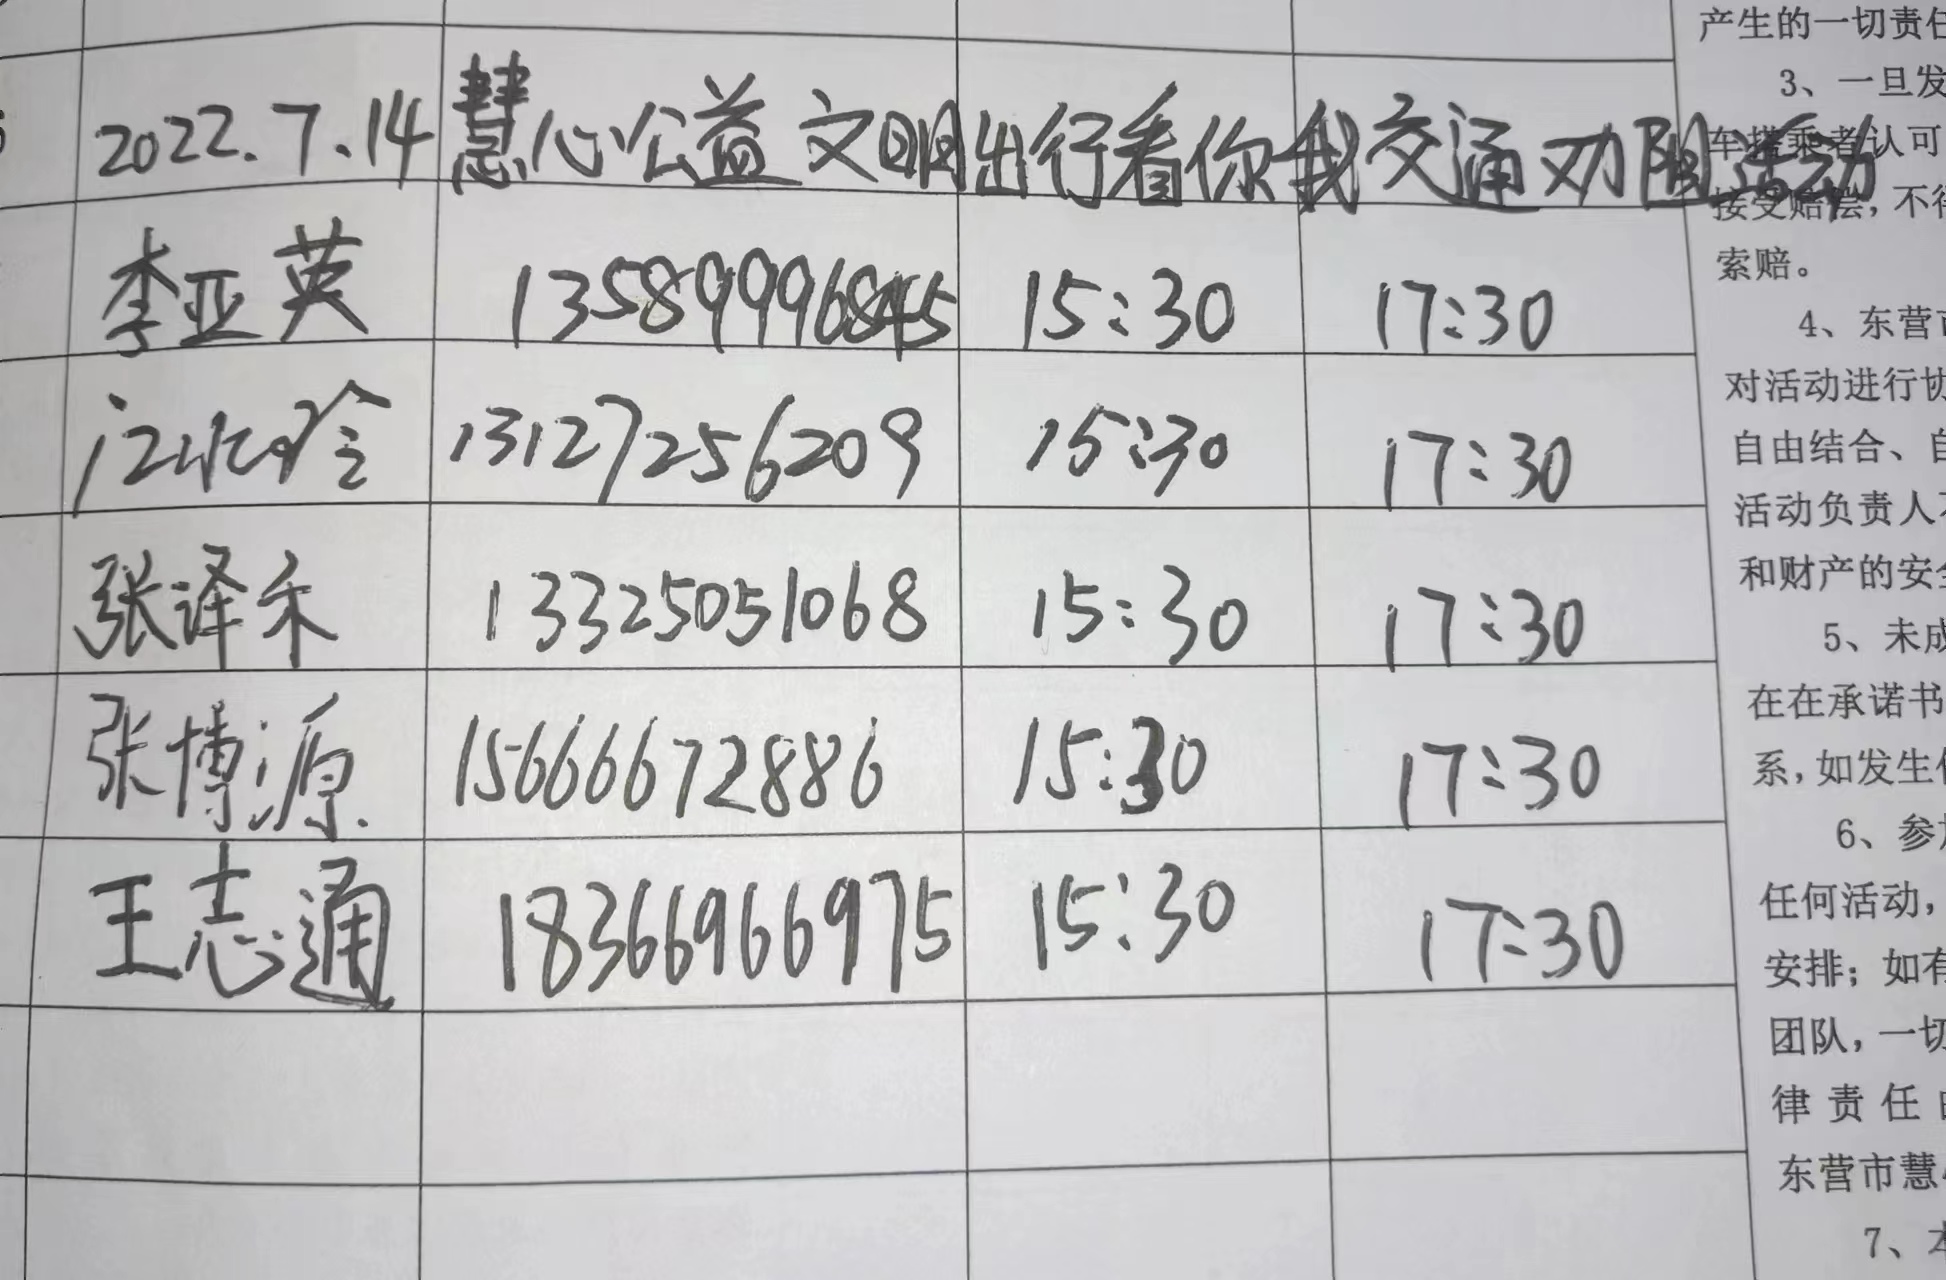 产生的一切责任
3、一旦发
2022.7.14 慧心公益 文明出行看你我交通劝阻活动
车搭乘者认可
接受赔偿，不得
李亚英 13589996845 15:30 17:30
索赔。
4、东营市
对活动进行协
13127256209 15:30 17:30
自由结合、自
活动负责人不
张泽禾 13325051068 15:30 17:30
和财产的安全
5、未成
在在承诺书
张博源 15666672886 15:30 17:30
系，如发生
6、参加
王志通 18366966975 15:30 17:30
任何活动，
安排；如有
团队，一切
律责任由
东营市慧心
7、本